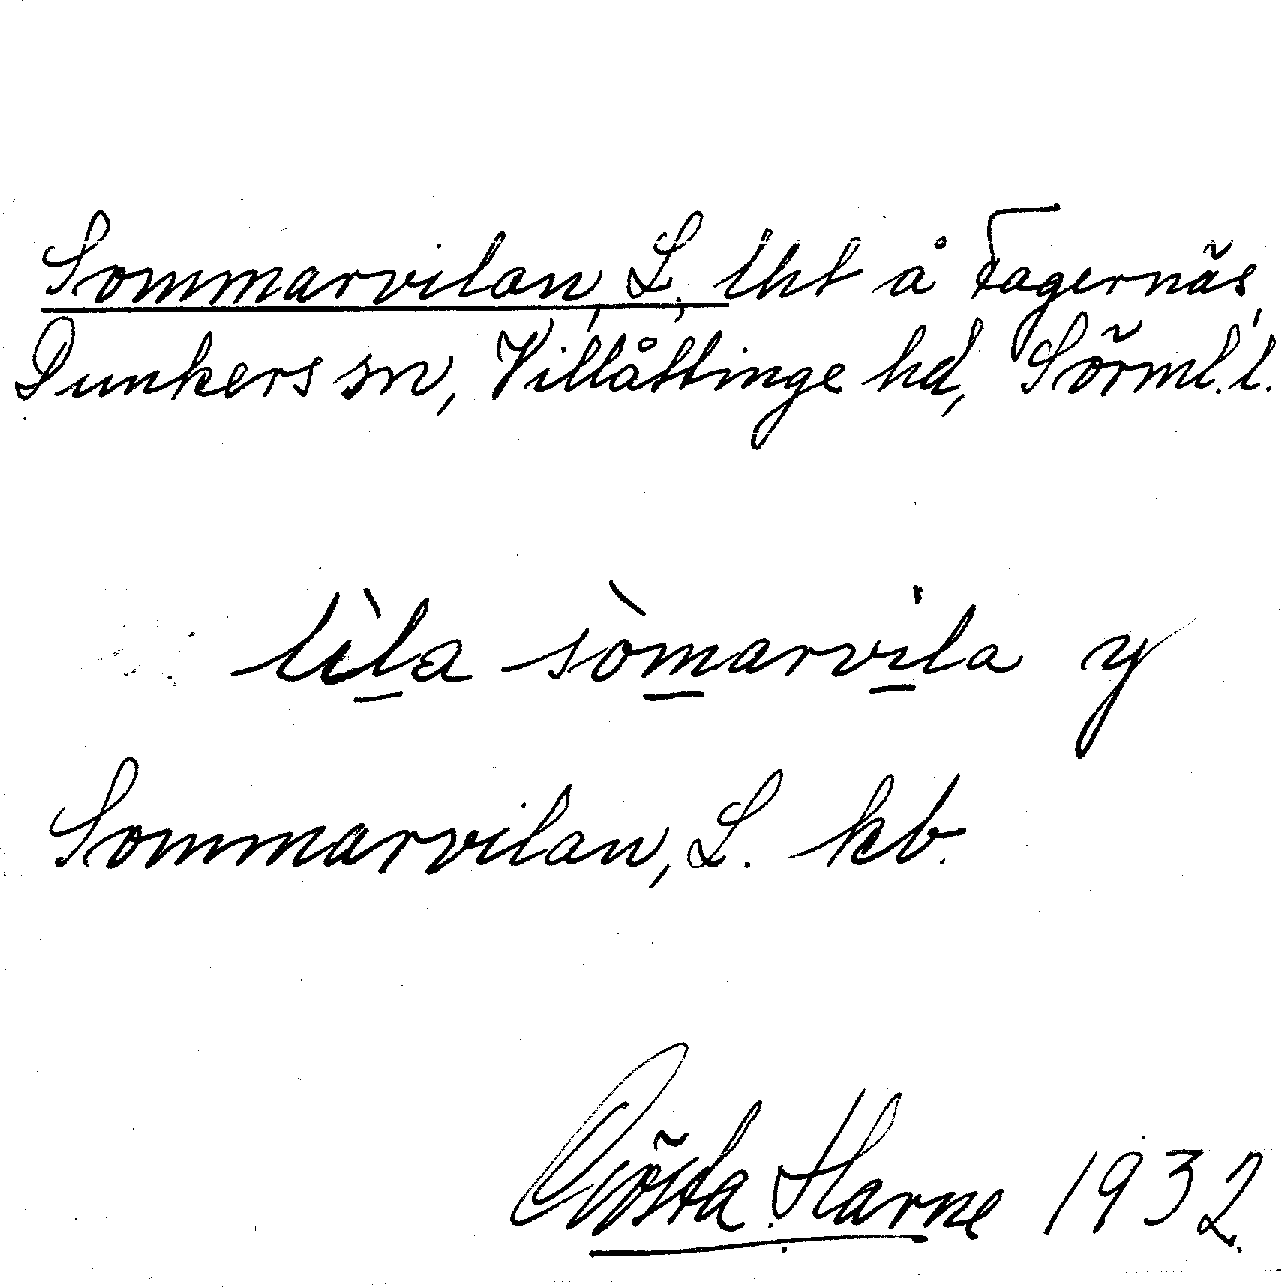 Sommarvilan, L, lht å Fagernäs,
Dunkers sn, Villåttinge hd, Sörml. l.
lìla sòmarvila y
Sommarvilan, L. kb.
Gösta Harne 1932.